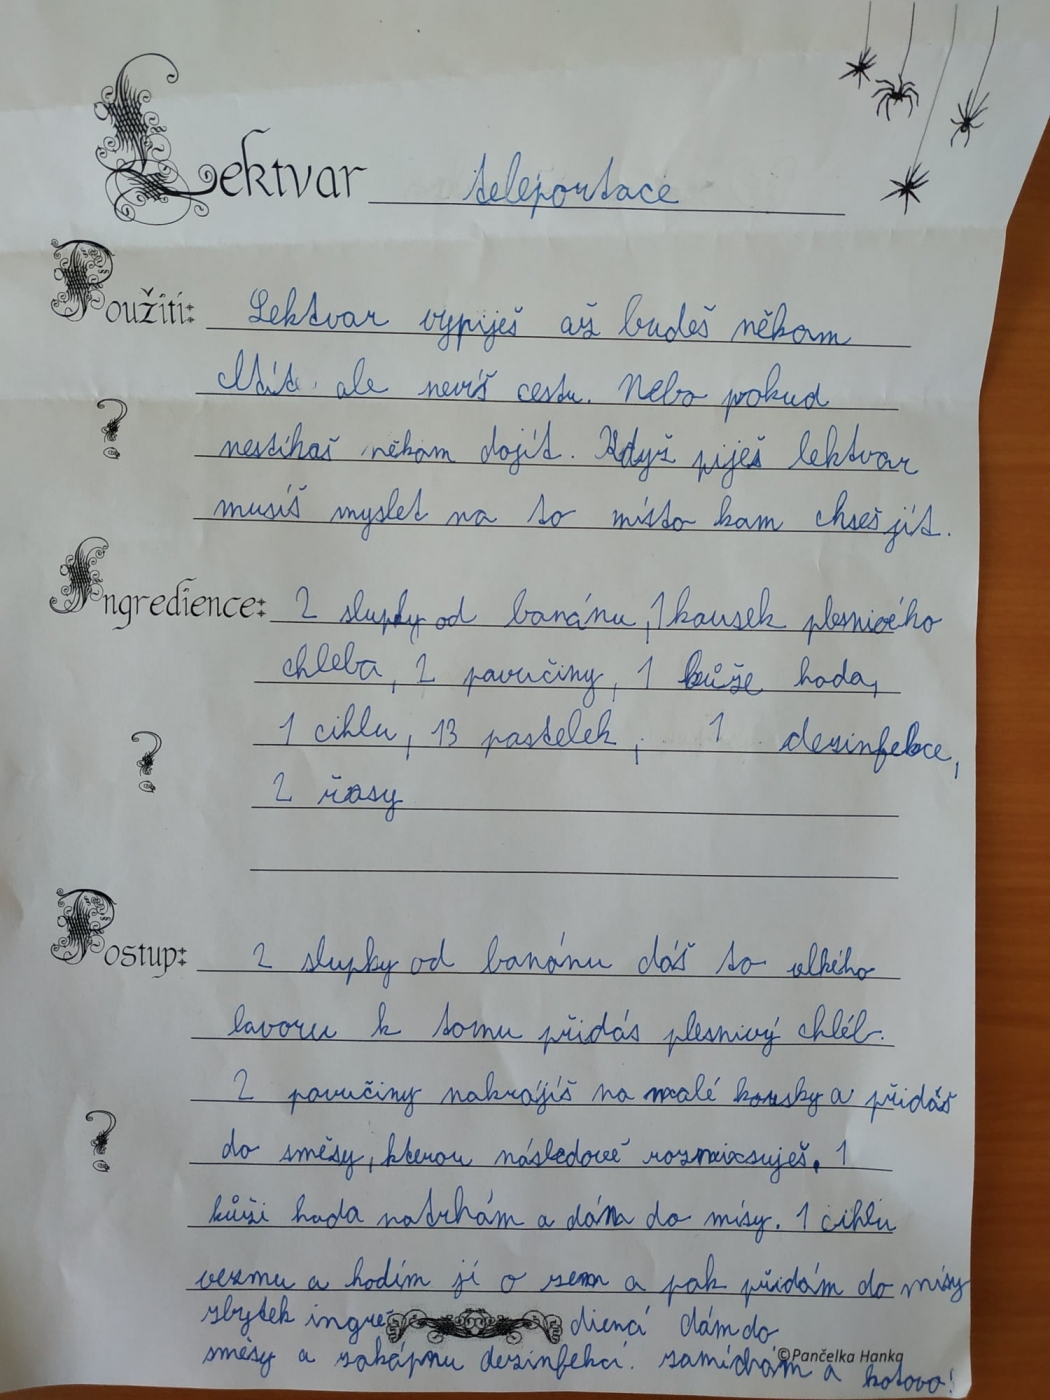 Lektvar teleportace
Použití: Lektvar vypiješ až budeš někam
chtít ale nevíš cestu. Nebo pokud
nestíhaš někam dojít. Když piješ lektvar
musíš myslet na to místo kam chseš jít.
Ingredience: 2 slupky od banánu, 1 kousek plesnivého
chleba, 2 pavučiny, 1 kůže hada,
1 cihlu, 13 pastelek, 1 dezinfekce,
2 řasy
Postup: 2 slupky od banánu dáš to velkého
lavoru k tomu přidás plesnivý chléb.
2 pavučiny nakrájíš na malé kousky a přidáš
do směsy, kterou následově rozmixsuješ. 1
kůži hada natrhám a dám do mísy. 1 cihlu
vezmu a hodím jí o zem a pak přidám do mísy
zbytek ingrediencí dám do
směsy a zakápnu dezinfekcí. zamíchám a hotovo!
©Pančelka Hanka